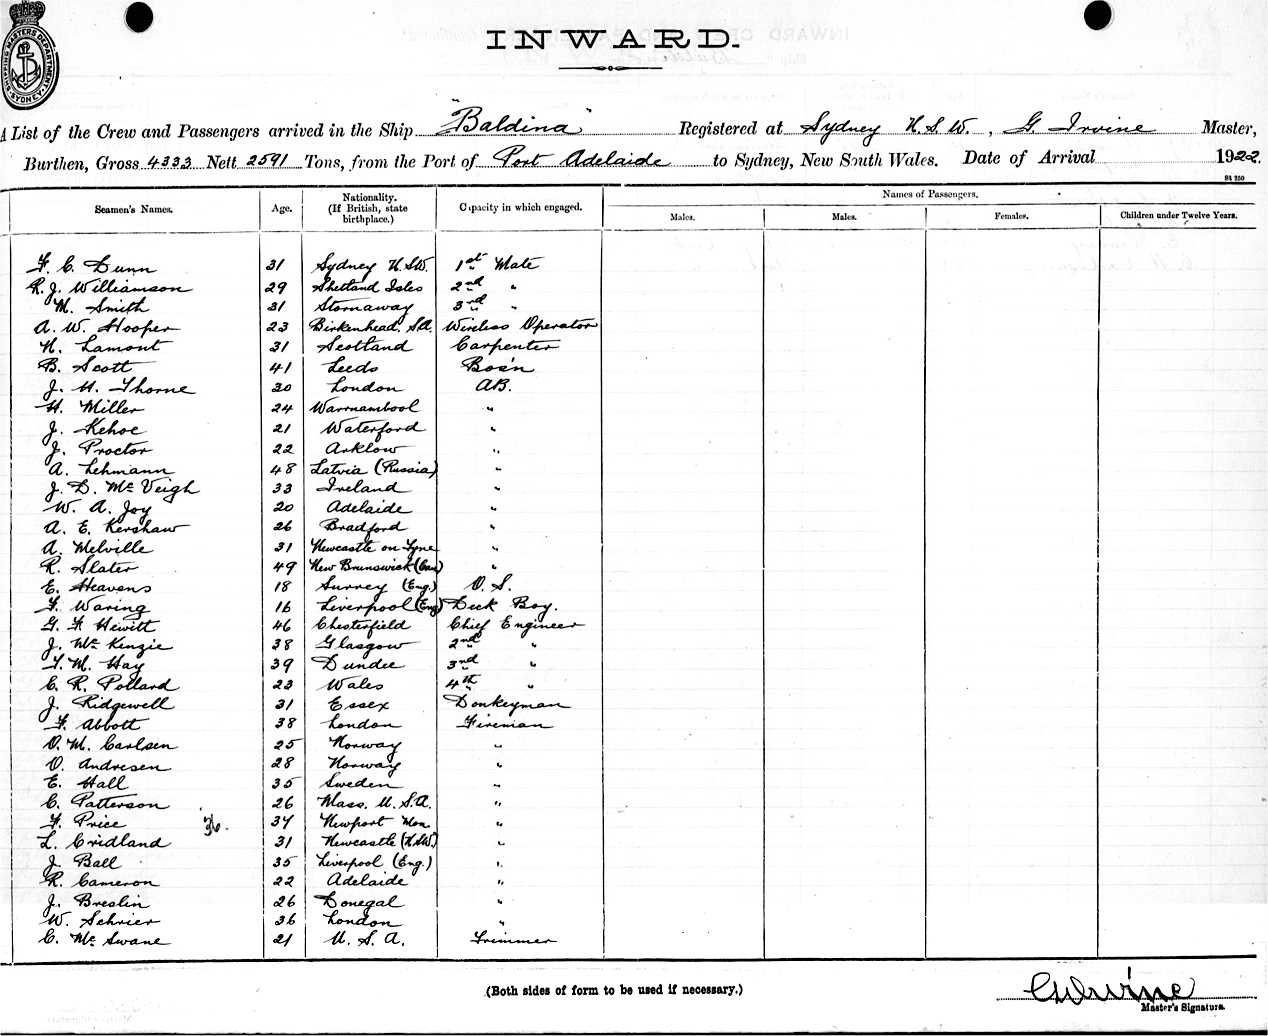 SHIPPING MASTERS DEPARTMENT SYDNEY
INWARD.
A List of the Crew and Passengers arrived in the Ship "Baldina" Registered at Sydney N.S.W., G. Irvine Master,
Burthen, Gross 4333 Nett 2591 Tons, from the Port of Port Adelaide to Sydney, New South Wales. Date of Arrival 1922.
Seamen's Names. Age. Nationality. (If British, state birthplace.) Capacity in which engaged. Names of Passengers.
Males. Males. Females. Children under Twelve Years.
F. C. Dunn 31 Sydney N.S.W. 1st Mate
R. J. Williamson 29 Shetland Isles 2nd "
M. Smith 31 Stornaway 3rd "
A. W. Hooper 23 Birkenhead. S.A. Wireless Operator
N. Lamont 31 Scotland Carpenter
B. Scott 41 Leeds Bos'n
J. H. Thorne 30 London A.B.
H. Miller 24 Warrnambool "
J. Kehoe 21 Waterford "
J. Proctor 22 Arklow "
A. Lehmann 48 Latvia (Russia) "
J. D. McVeigh 33 Ireland "
W. A. Joy 20 Adelaide "
A. E. Kershaw 26 Bradford "
A. Melville 31 Newcastle on Tyne "
R. Slater 49 New Brunswick (Can) "
E. Heavens 18 Surrey (Eng.) O. S.
F. Waring 16 Liverpool (Eng) Deck Boy.
G. F. Hewitt 46 Chesterfield Chief Engineer
J. McKenzie 38 Glasgow 2nd "
T. M. Hay 39 Dundee 3rd "
C. R. Pollard 23 Wales 4th "
J. Ridgewell 31 Essex Donkeyman
F. Abbott 38 London Fireman
O. M. Carlsen 25 Norway "
O. Andresen 28 Norway "
E. Hall 35 Sweden "
C. Patterson 26 Mass. U.S.A. "
F. Price 36. 34 Newport Mon "
L. Cridland 31 Newcastle (N.S.W.) "
J. Ball 35 Liverpool (Eng.) "
R. Cameron 22 Adelaide "
J. Breslin 26 Donegal "
W. Schrier 36 London "
C. McSwane 21 U. S. A. Trimmer
(Both sides of form to be used if necessary.)
G Irvine
Master's Signature.